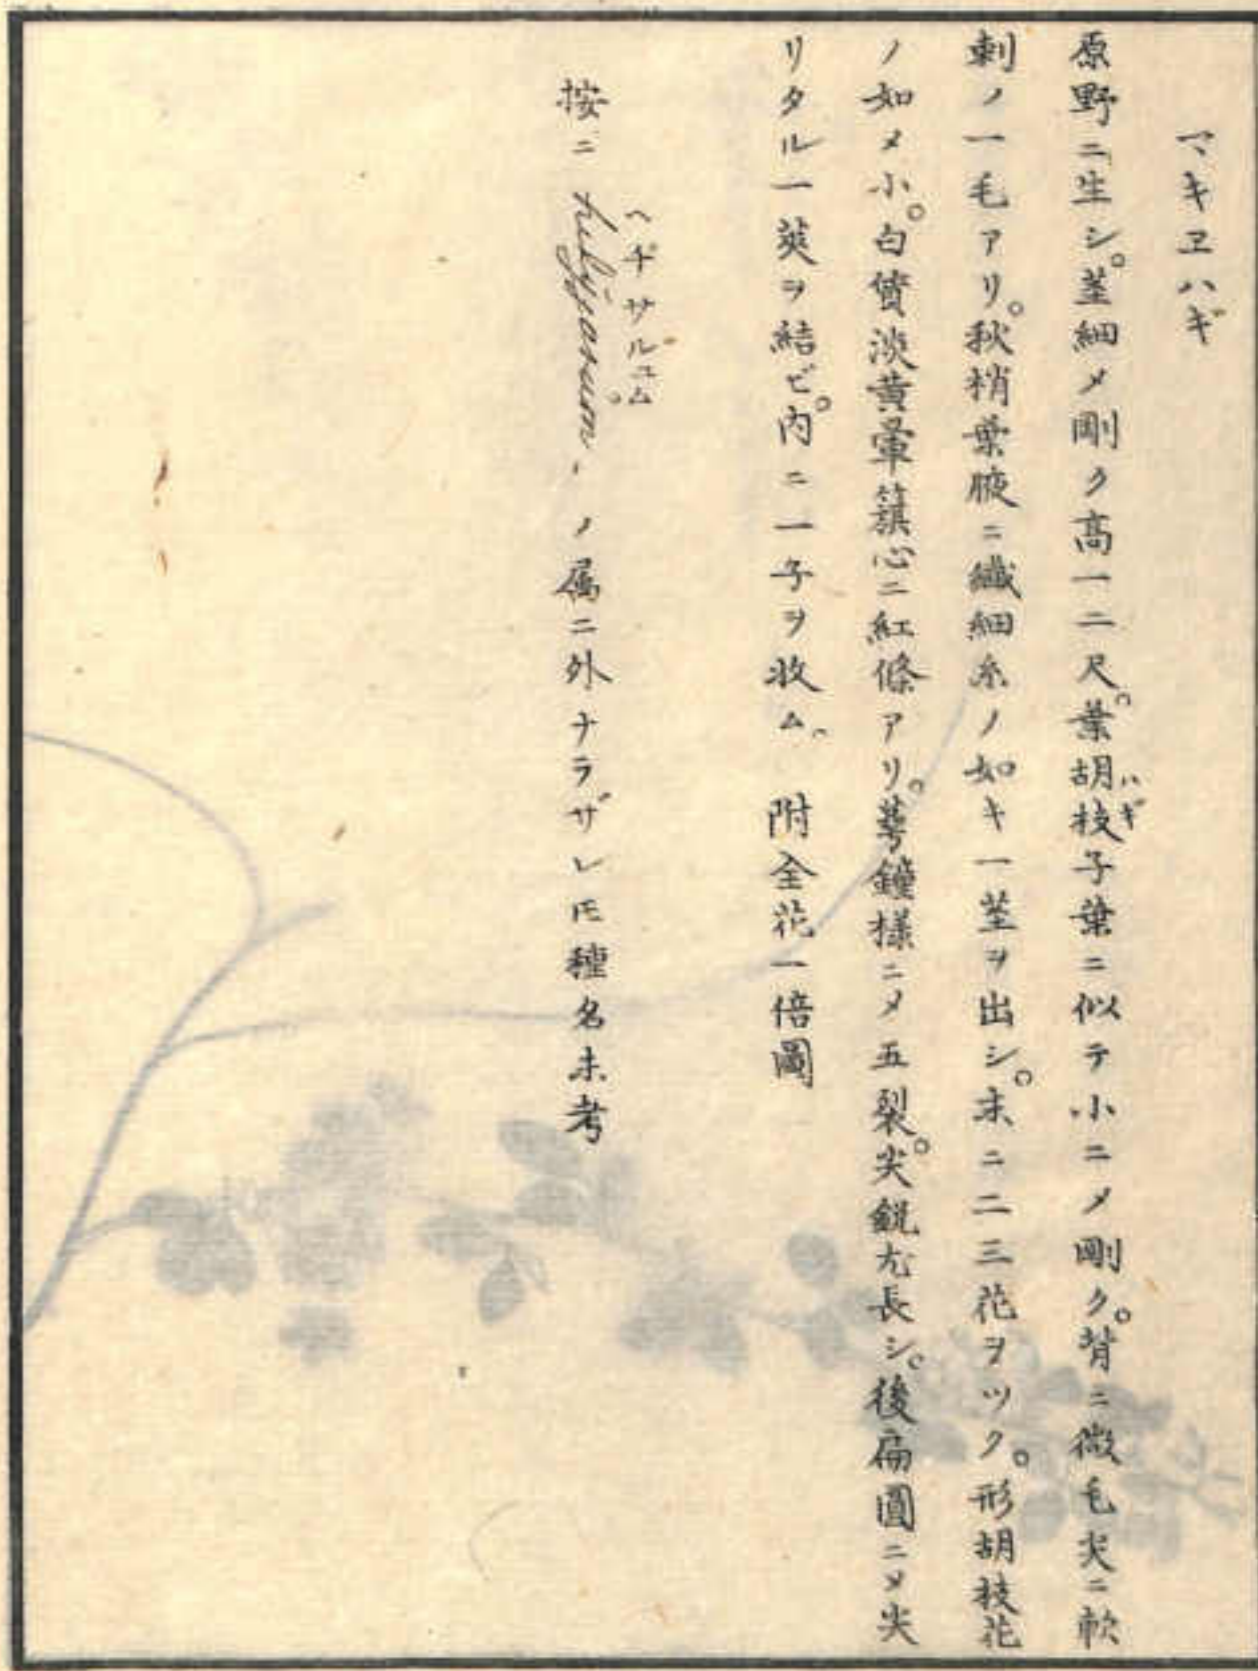 マキヱハギ
原野ニ生シ。莖細メ剛ク高一二尺。葉胡枝子葉ニ似テ小ニメ剛ク。背ニ微毛尖ニ軟
ハギ
刺ノ一毛アリ。秋梢葉腋ニ纎細糸ノ如キ一莖ヲ出シ。末ニ二三花ヲツク。形胡枝花
ノ如メ小。白質淡黄暈籏心ニ紅條アリ。萼鐘様ニメ五裂。尖鋭尤長シ。後扁圓ニメ尖
リタル一莢ヲ結ビ。内ニ一子ヲ收ム。 附全花一倍圖
ヘヂサルユム
按ニ hedysarum, ノ属ニ外ナラザレ𪜈種名未考